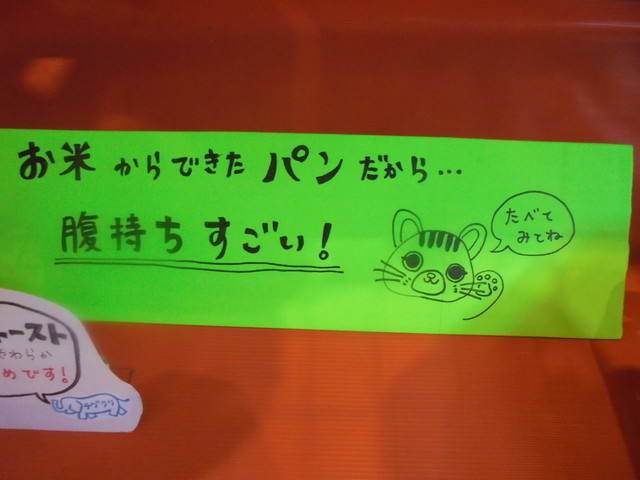 お米からできたパンだから…
腹持ちすごい!
たべて
みてね
トースト
やわらか
めです!